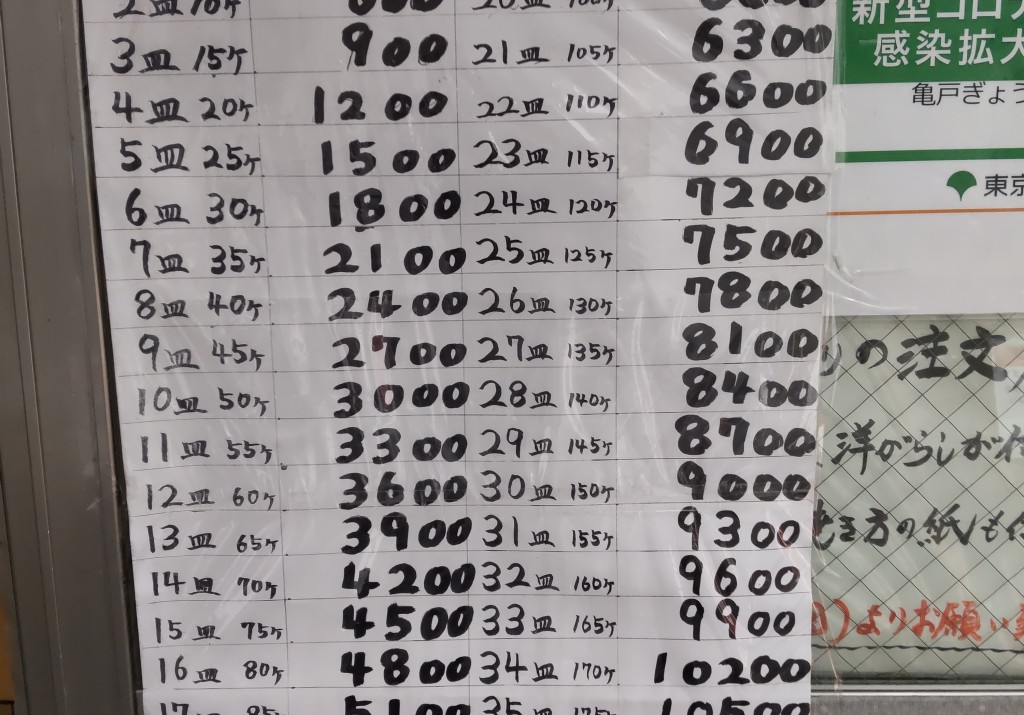 2皿 10ケ 600 20皿 100ケ 6000
3皿 15ケ 900 21皿 105ケ 6300
4皿 20ケ 1200 22皿 110ケ 6600
5皿 25ケ 1500 23皿 115ケ 6900
6皿 30ケ 1800 24皿 120ケ 7200
7皿 35ケ 2100 25皿 125ケ 7500
8皿 40ケ 2400 26皿 130ケ 7800
9皿 45ケ 2700 27皿 135ケ 8100
10皿 50ケ 3000 28皿 140ケ 8400
11皿 55ケ 3300 29皿 145ケ 8700
12皿 60ケ 3600 30皿 150ケ 9000
13皿 65ケ 3900 31皿 155ケ 9300
14皿 70ケ 4200 32皿 160ケ 9600
15皿 75ケ 4500 33皿 165ケ 9900
16皿 80ケ 4800 34皿 170ケ 10200
17皿 85ケ 5100 35皿 175ケ 10500
新型コロナ
感染拡大
亀戸ぎょう
東京
りの注文
洋がらしが付
焼き方の紙も付
よりお願い